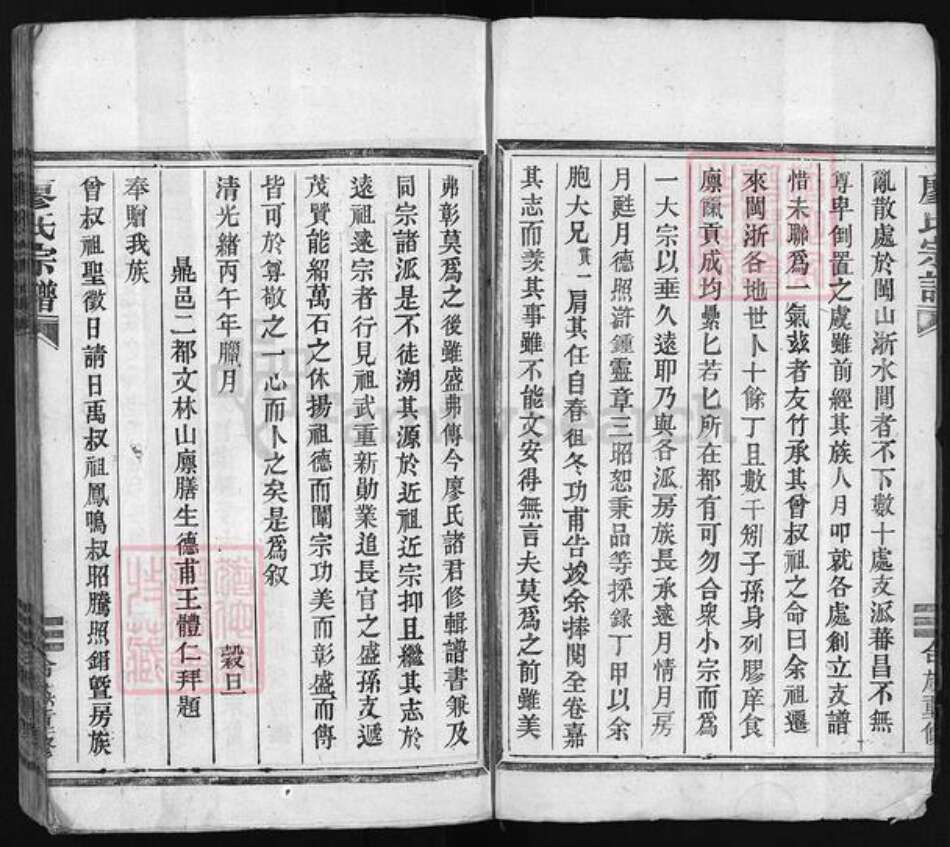 亂散處於閩山浙水間者不下數十處支派蕃昌不無
尊卑倒置之虞雖前經其族人月叩就各處創立支譜
惜未聯為一氣茲者友竹承其曾叔祖之命曰余祖遷
來閩浙各地世卜十餘丁且數千矧子孫身列膠庠食
廩餼貢成均纍匕若匕所在都有可勿合衆小宗而為
一大宗以垂久遠耶乃與各派房族長承遠月情月房
月甦月德照滸鍾靈章三昭恕秉品等採錄丁甲以余
胞大兄貫一肩其任自春徂冬功甫告竣余捧閱全卷嘉
其志而羨其事雖不能文安得無言夫莫為之前雖美
弗彰莫爲之後雖盛弗傳今廖氏諸君修輯譜書兼及
同宗諸派是不徒溯其源於近祖近宗抑且繼其志於
遠祖遠宗者行見祖武重新勛業追長官之盛孫支遞
茂賢能紹萬石之休揚祖德而闡宗功美而彰盛而傳
皆可於尊敬之一心而卜之矣是爲叙
清光緒丙午年臘月 穀旦
鼎邑二都文林山廩膳生德甫王體仁拜題
奉贈我族
曾叔祖聖徵日請日禹叔祖鳳鳴叔昭騰照鋗暨房族
廖氏宗譜
合族重修